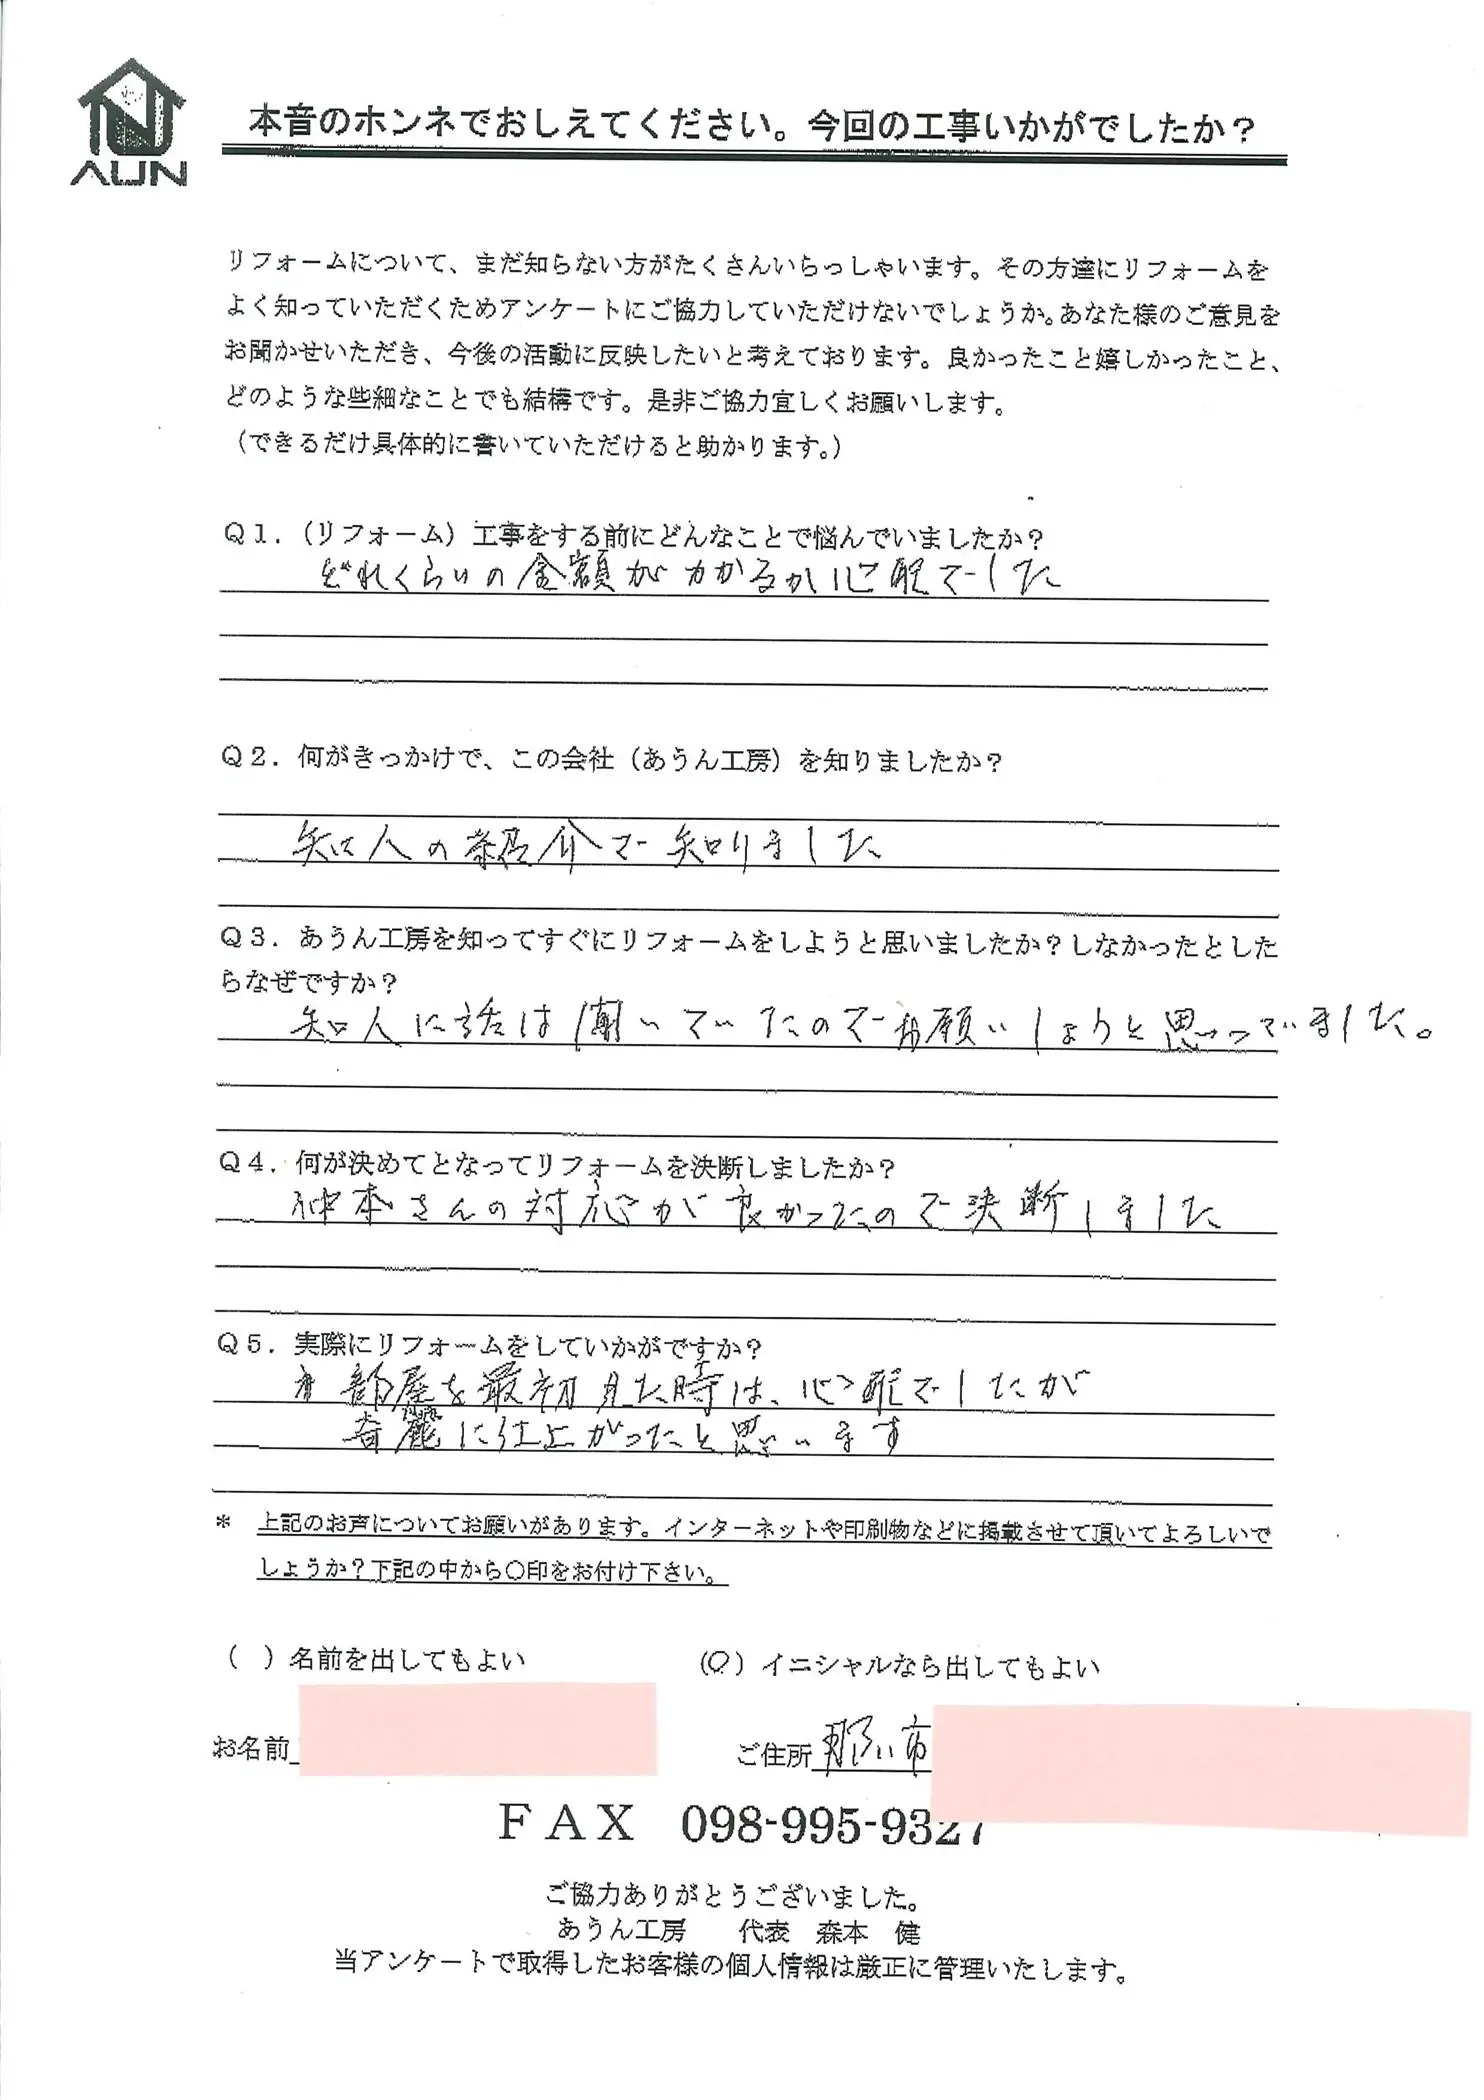 AUN
本音のホンネでおしえてください。今回の工事いかがでしたか？
リフォームについて、まだ知らない方がたくさんいらっしゃいます。その方達にリフォームを
よく知っていただくためアンケートにご協力していただけないでしょうか。あなた様のご意見を
お聞かせいただき、今後の活動に反映したいと考えております。良かったこと嬉しかったこと、
どのような些細なことでも結構です。是非ご協力宜しくお願いします。
（できるだけ具体的に書いていただけると助かります。）
Ｑ１．（リフォーム）工事をする前にどんなことで悩んでいましたか？
どれくらいの金額がかかるか心配でした
Ｑ２．何がきっかけで、この会社（あうん工房）を知りましたか？
知人の紹介で知りました
Ｑ３．あうん工房を知ってすぐにリフォームをしようと思いましたか？しなかったとした
らなぜですか？
知人に話は聞いていたのでお願いしようと思っていました。
Ｑ４．何が決めてとなってリフォームを決断しましたか？
仲本さんの対応が良かったので決断しました
Ｑ５．実際にリフォームをしていかがですか？
部屋を最初見た時は、心配でしたが
奇麗に仕上がったと思います
＊ 上記のお声についてお願いがあります。インターネットや印刷物などに掲載させて頂いてよろしいで
しょうか？下記の中から○印をお付け下さい。
（ ）名前を出してもよい （○）イニシャルなら出してもよい
お名前 ご住所 那覇市
ＦＡＸ 098-995-9327
ご協力ありがとうございました。
あうん工房 代表 森本 健
当アンケートで取得したお客様の個人情報は厳正に管理いたします。